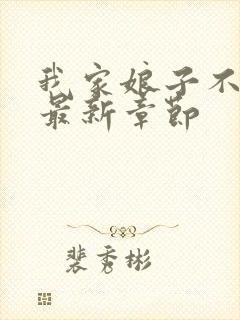 我家娘子不
最新章节
裴秀彬